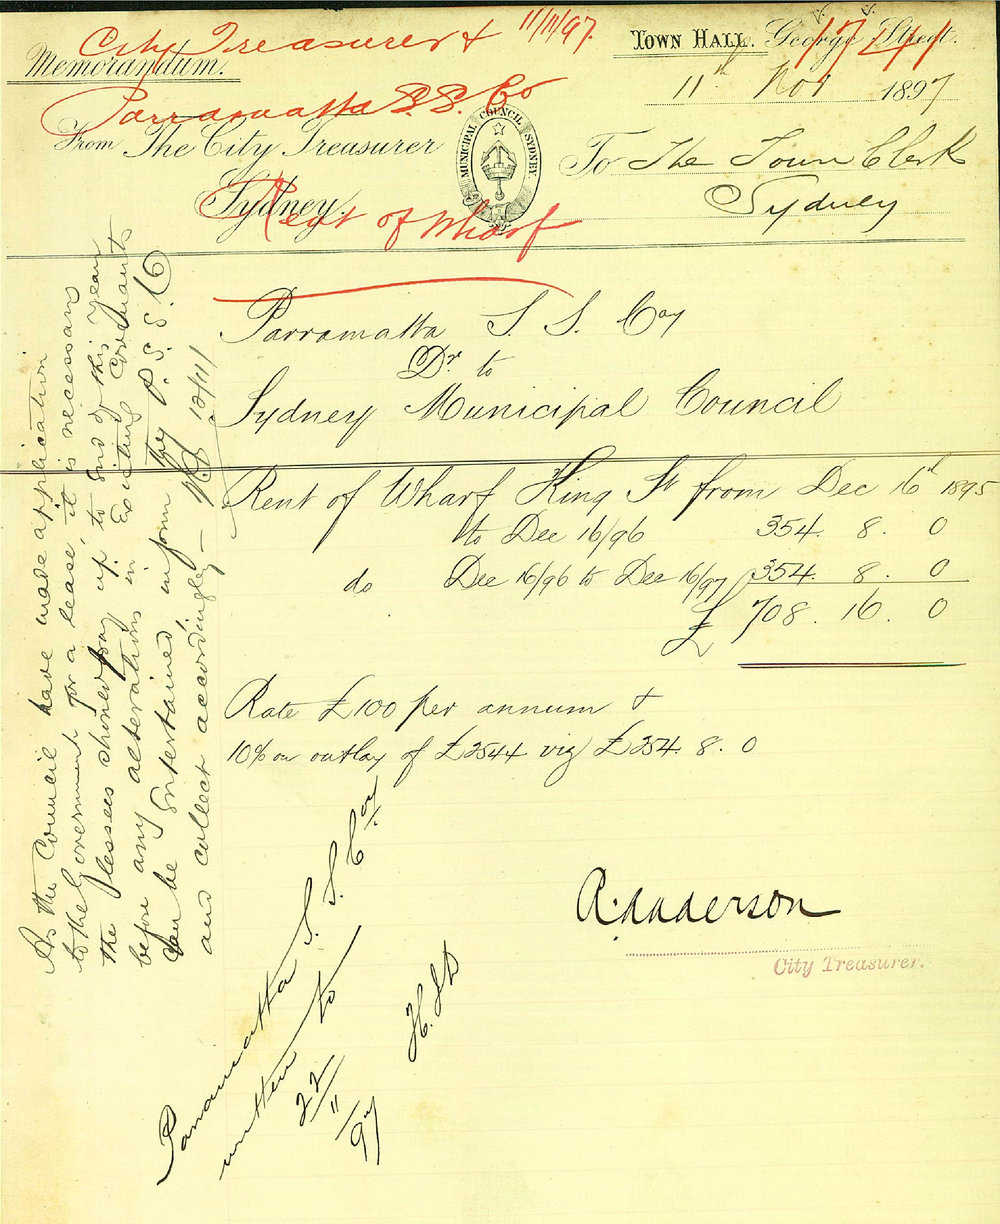 City Treasurer & 11/11/97.
TOWN HALL. George Street.
Memorandum.
11th Nov 1897
Parramatta S.S. Co
MUNICIPAL COUNCIL SYDNEY.
From The City Treasurer
To The Town Clerk
Sydney.
Sydney
Rent of Wharf
Parramatta S. S. Coy
Dr to
Sydney Municipal Council
Rent of Wharf King St from Dec 16th 1895
to Dec 16/96 354. 8. 0
do Dec 16/96 to Dec 16/97 354. 8. 0
£ 708. 16. 0
Rate £100 per annum &
10% on outlay of £2544 viz £354. 8. 0
R. Anderson
City Treasurer.
As the Council have made application
to the Government for a lease, it is necessary
the lessees should pay up to end of this Year
before any alterations in Existing Covenants
can be Entertained, inform the P. S. S. Co
and collect accordingly — 12/11/
Parramatta S. S. Coy
written to
22/11/97